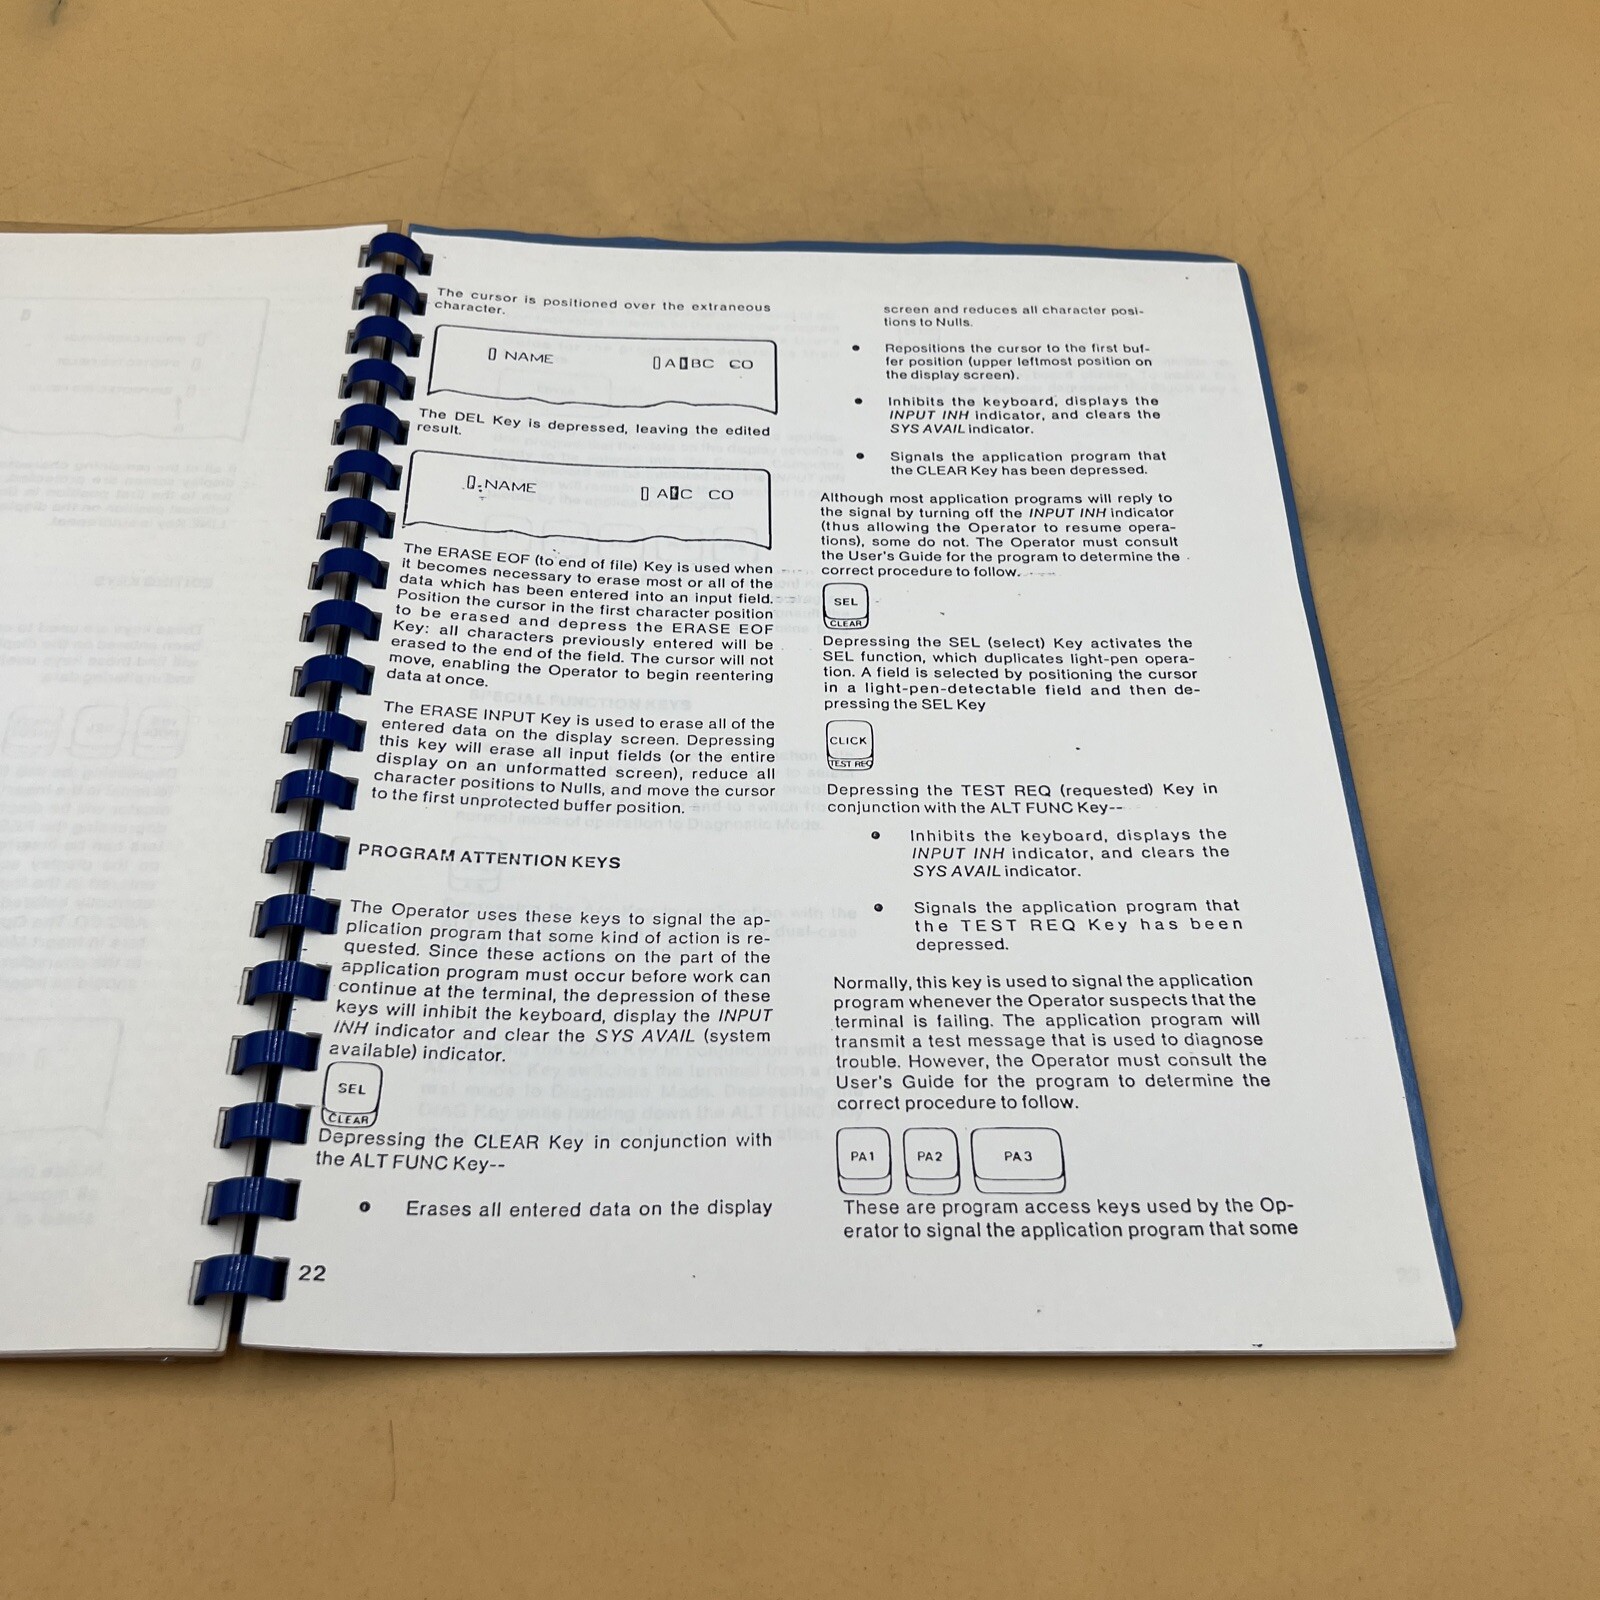 The cursor is positioned over the extraneous
character.
NAME
A BC CO
The DEL Key is depressed, leaving the edited
result.
NAME
A C CO
The ERASE EOF (to end of file) Key is used when
it becomes necessary to erase most or all of the
data which has been entered into an input field.
Position the cursor in the first character position
to be erased and depress the ERASE EOF
Key: all characters previously entered will be
erased to the end of the field. The cursor will not
move, enabling the Operator to begin reentering
data at once.
The ERASE INPUT Key is used to erase all of the
entered data on the display screen. Depressing
this key will erase all input fields (or the entire
display on an unformatted screen), reduce all
character positions to Nulls, and move the cursor
to the first unprotected buffer position.
PROGRAM ATTENTION KEYS
The Operator uses these keys to signal the ap-
plication program that some kind of action is re-
quested. Since these actions on the part of the
application program must occur before work can
continue at the terminal, the depression of these
keys will inhibit the keyboard, display the INPUT
INH indicator and clear the SYS AVAIL (system
available) indicator.
SEL
CLEAR
Depressing the CLEAR Key in conjunction with
the ALT FUNC Key--
• Erases all entered data on the display
22
screen and reduces all character posi-
tions to Nulls.
• Repositions the cursor to the first buf-
fer position (upper leftmost position on
the display screen).
• Inhibits the keyboard, displays the
INPUT INH indicator, and clears the
SYS AVAIL indicator.
• Signals the application program that
the CLEAR Key has been depressed.
Although most application programs will reply to
the signal by turning off the INPUT INH indicator
(thus allowing the Operator to resume opera-
tions), some do not. The Operator must consult
the User's Guide for the program to determine the
correct procedure to follow.
SEL
CLEAR
Depressing the SEL (select) Key activates the
SEL function, which duplicates light-pen opera-
tion. A field is selected by positioning the cursor
in a light-pen-detectable field and then de-
pressing the SEL Key
CLICK
TEST REQ
Depressing the TEST REQ (requested) Key in
conjunction with the ALT FUNC Key--
• Inhibits the keyboard, displays the
INPUT INH indicator, and clears the
SYS AVAIL indicator.
• Signals the application program that
the TEST REQ Key has been
depressed.
Normally, this key is used to signal the application
program whenever the Operator suspects that the
terminal is failing. The application program will
transmit a test message that is used to diagnose
trouble. However, the Operator must consult the
User's Guide for the program to determine the
correct procedure to follow.
PA1 PA2 PA3
These are program access keys used by the Op-
erator to signal the application program that some